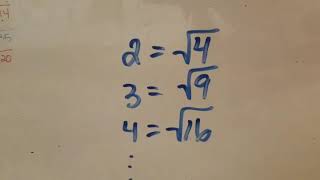 2 = √4
3 = √9
4 = √16
⋮